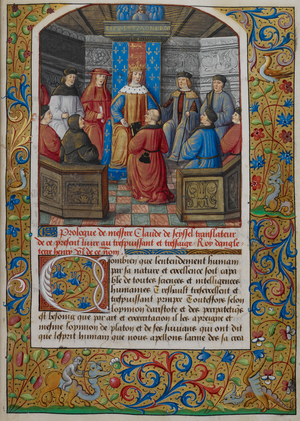 Prologue de messire Claude de seyssel translateur
de ce present livre au trespuissant et tressaige Roy dangle
terre henry VIIe de ce nom
Combien que lentendement humain
par sa nature et excellence soit capa
ble de toutes sciences et intelligences
humaines Treshault trexcellent et
trespuissant prince Toutesfois selon
lopinion daristote et des perpateticqs
est besoing que par art et exercitacion il les apreigne et
mesme lopinion de platon et de ses suyvans qui ont dit
que lesprit humain que nous apellons lame des sa crea